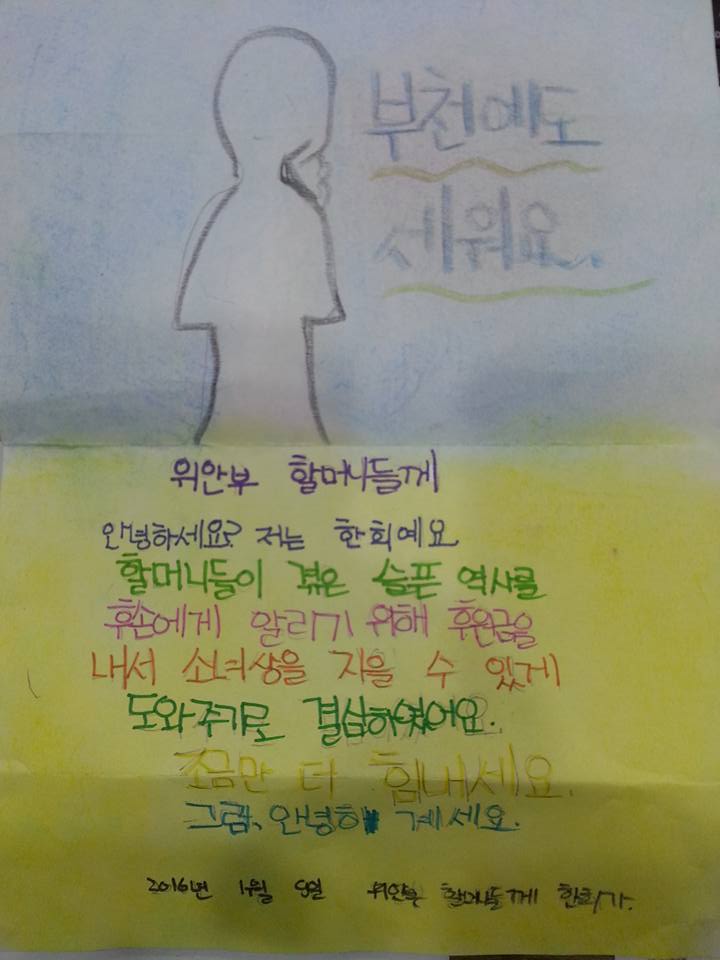 부천에도
세워요.
위안부 할머니들께
안녕하세요? 저는 한희예요
할머니들이 겪은 슬픈 역사를
후손에게 알리기 위해 후원금을
내서 소녀상을 지을 수 있게
도와주기로 결심하였어요.
조금만 더 힘내세요.
그럼, 안녕히 계세요.
2016년 1월 9일 위안부 할머니들께 한희가.